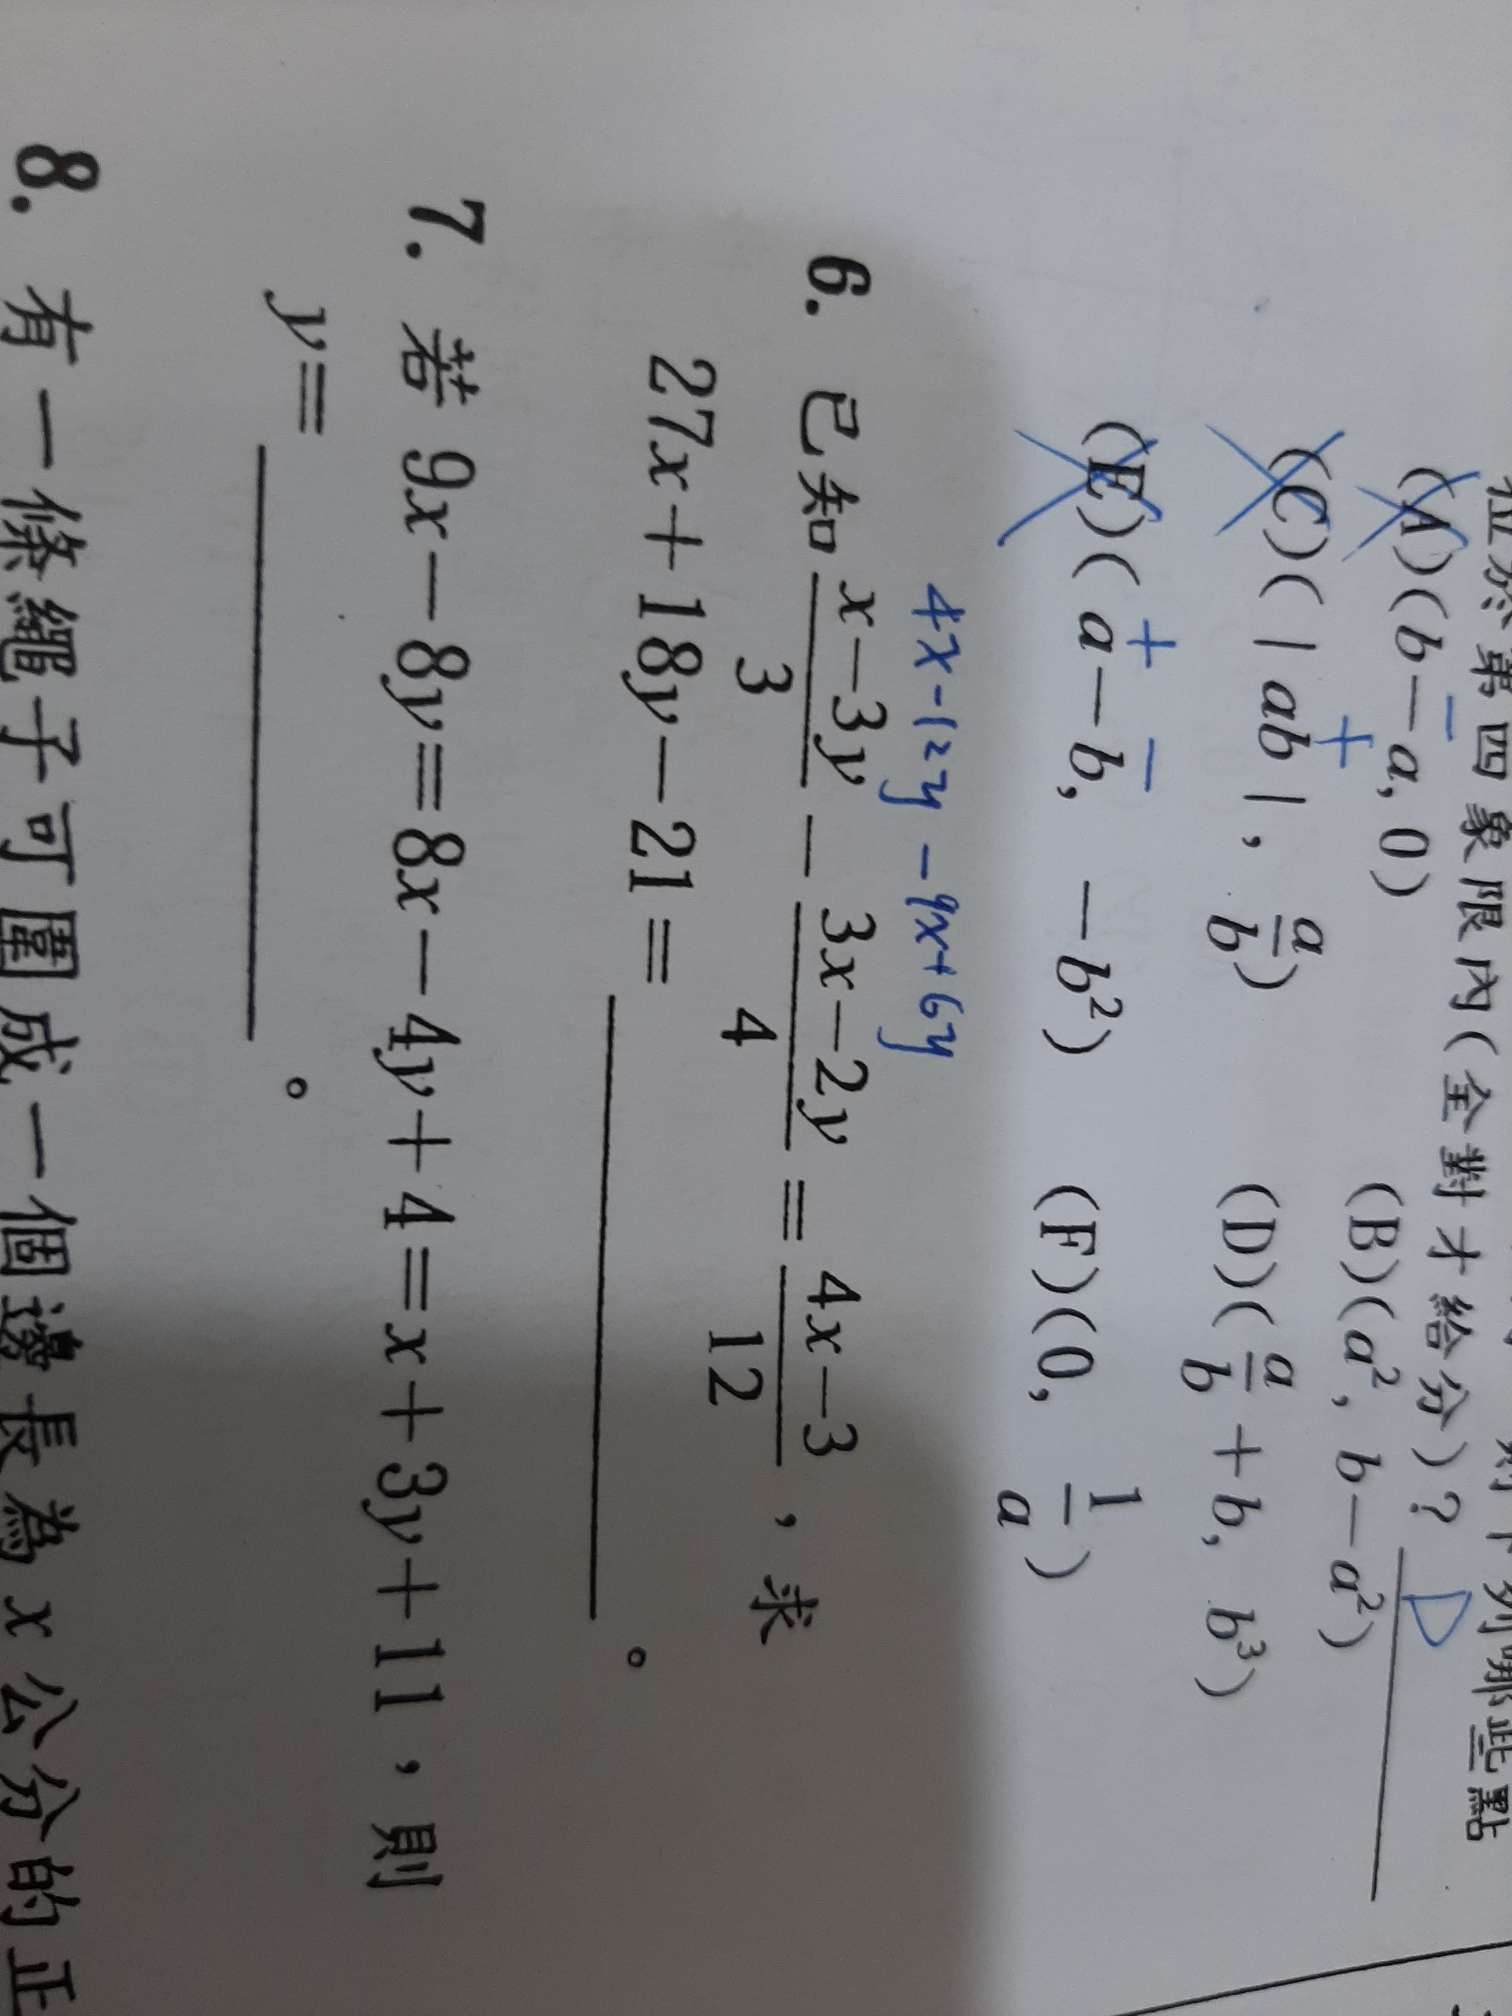 位於第四象限內(全對才給分)？ D
(A)(b－a, 0) (B)(a², b－a²)
－
(C)(｜ab｜, a/b) (D)(a/b＋b, b³)
＋
(E)(a－b, －b²) (F)(0, 1/a)
＋ －
4x－12y －9x＋6y
6. 已知 (x－3y)/3 － (3x－2y)/4 ＝ (4x－3)/12，求
27x＋18y－21＝＿＿＿＿。
7. 若 9x－8y＝8x－4y＋4＝x＋3y＋11，則
y＝＿＿＿＿。
8. 有一條繩子可圍成一個邊長為 x 公分的正